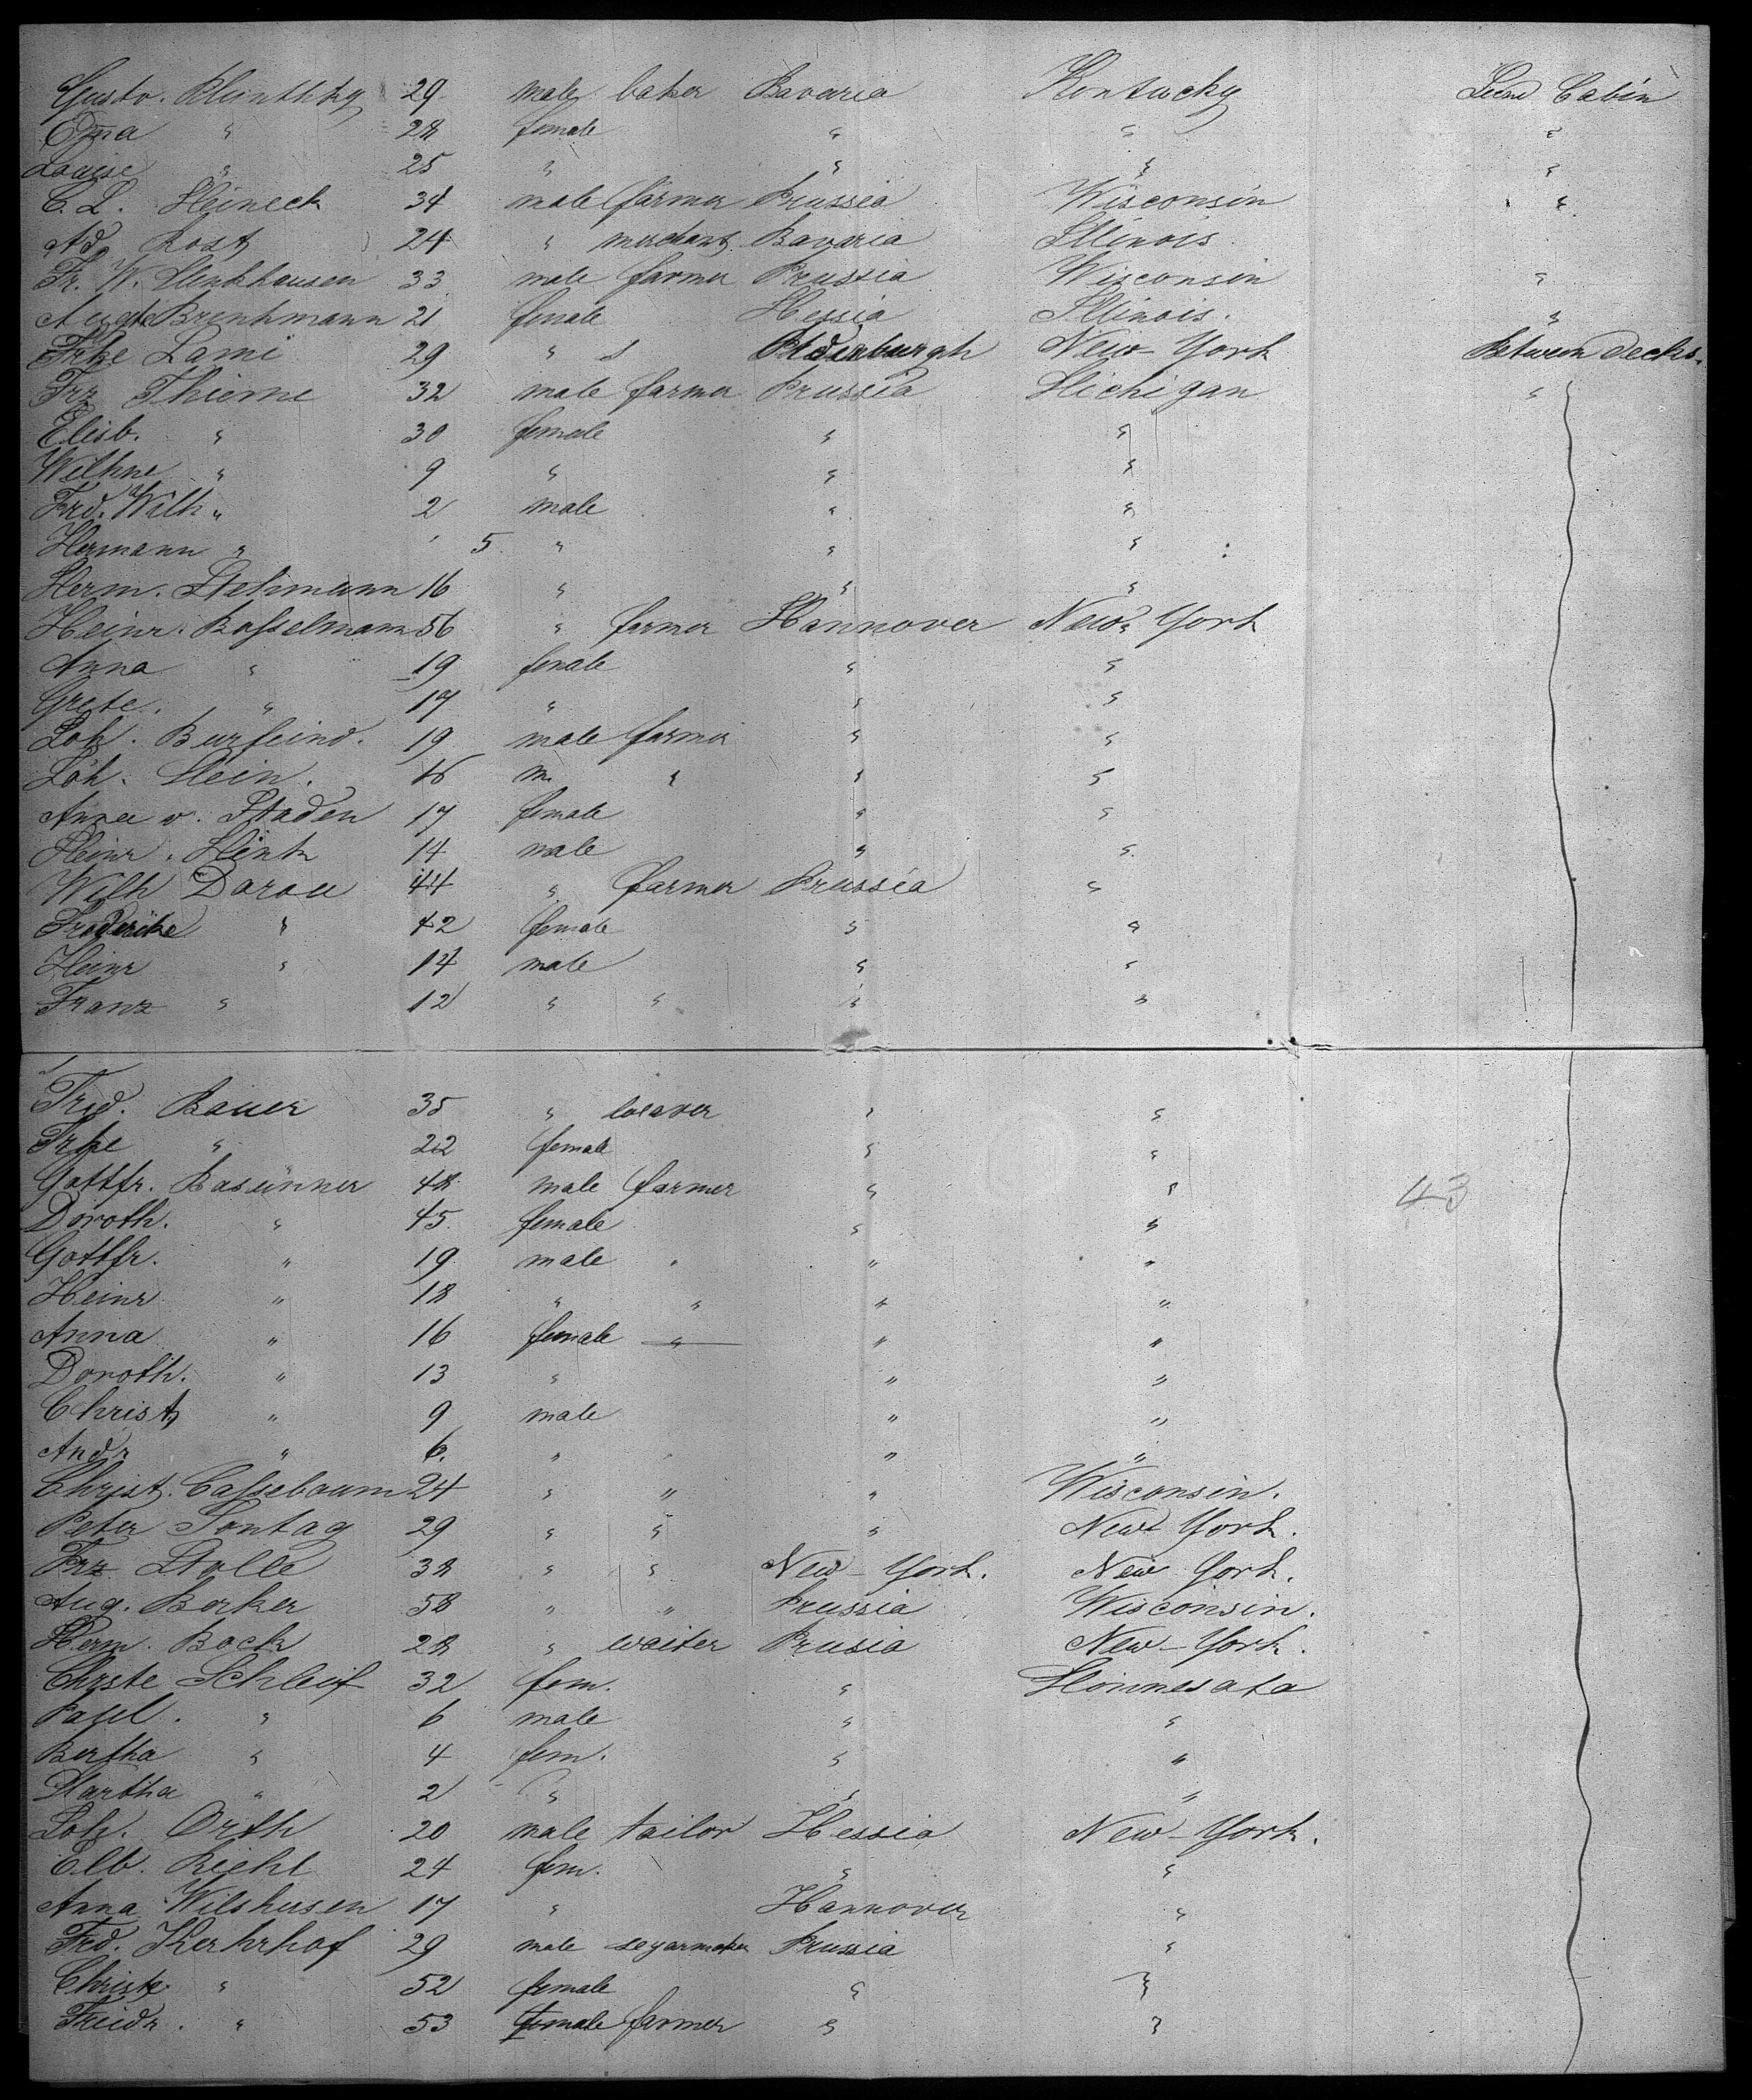 Gustv. Klunthky 29 male baker Bavaria Kentucky Secnd Cabin
Ema " 28 female " " "
Louise " 25 " " " "
C. L. Heineck 34 male farmer Prussia Wisconsin "
Ad. Rost 24 " merchant Bavaria Illinois
Fr. W. Menkhausen 33 male farmer Prussia Wisconsin "
Augte Brenkmann 21 female Hessia Illinois. "
Frke Lami 29 " Oldenburgh New-York Between decks.
Frz Thieme 32 male farmer Prussia Michigan "
Elisb. " 30 female " "
Wilhne " 9 " " "
Frd. Wilh " 2 male " "
Hermann " 5 " " "
Herm. Stehmann 16 " " "
Heinr. Bosselmann 56 " farmer Hannover New-York
Anna " 19 female " "
Grete. " 17 " " "
Joh. Burfeind. 19 male farmer " "
Joh. Hein. 16 m. " " "
Anna v. Staden 17 female " "
Heinr. Hink 14 male " "
Wilh Darau 44 " farmer Prussia "
Frederike " 42 female " "
Heinr " 14 male " "
Franz " 12 " " " "
Frid. Bauer 35 " weaver " "
Frke " 22 female " "
Gottfr. Basünner 48 male farmer " "
43
Doroth. " 45 female " "
Gottfr. " 19 male " " "
Heinr " 18 " " " "
Anna " 16 female " " "
Doroth. " 13 " " "
Christ " 9 male " "
Andr " 6. " " "
Christ. Cassebaum 24 " " " Wisconsin.
Peter Sontag 29 " " " New York.
Frz Stolle 38 " " New-York. New York.
Aug. Borker 58 " " Prussia Wisconsin.
Herm. Bock 28 " waiter Prusia New-York.
Chrste Schleif 32 fem. " Minnesata
Paul. " 6 male " "
Bertha " 4 fem. " "
Martha " 2 " " "
Joh. Orth 20 male tailor Hessia New-York.
Elb. Riehl 24 fem. " "
Anna Wilshusen 17 " Hannover "
Frd. Kerkhof 29 male segarmaker Prussia "
Christe. " 52 female " "
Friedr. " 53 male farmer " "